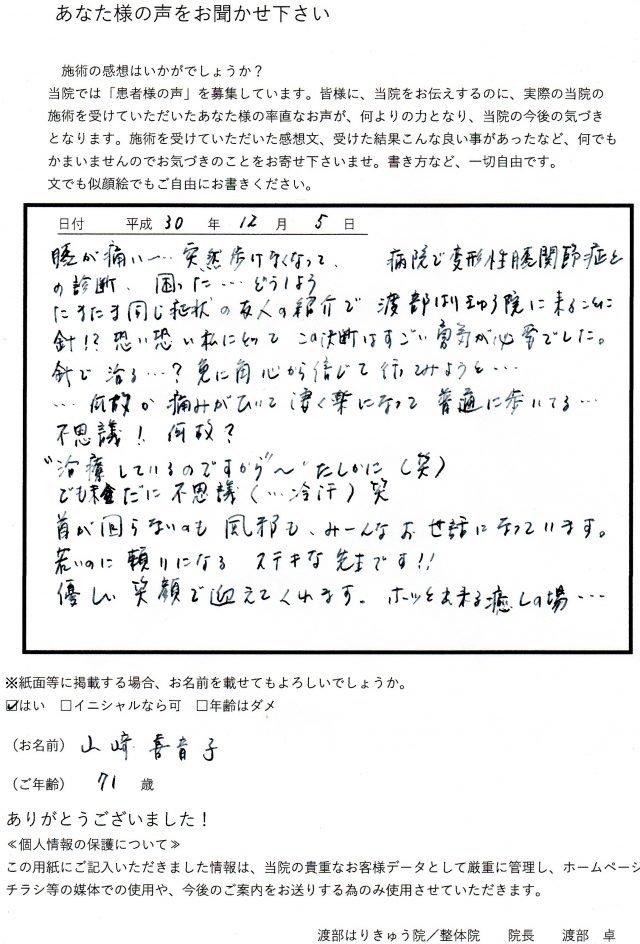 あなた様の声をお聞かせ下さい
施術の感想はいかがでしょうか？
当院では「患者様の声」を募集しています。皆様に、当院をお伝えするのに、実際の当院の
施術を受けていただいたあなた様の率直なお声が、何よりの力となり、当院の今後の気づき
となります。施術を受けていただいた感想文、受けた結果こんな良い事があったなど、何でも
かまいませんのでお気づきのことをお寄せ下さいませ。書き方など、一切自由です。
文でも似顔絵でもご自由にお書きください。
日付 平成 30 年 12 月 5 日
膝が痛い…突然歩けなくなって、 病院で変形性膝関節症と
の診断、困った…どうしよう
たまたま同じ症状の友人の紹介で 渡部はりきゅう院に来ることに
針!? 恐い恐い私にとって この決断はすごい勇気が必要でした。
針で治る…？兎に角 心から信じて行ってみようと…
…何故か痛みがひいて 凄く楽になって 普通に歩いてる…
不思議！ 何故？
“治療しているのですから”～ たしかに（笑）
でも未だに不思議（…冷汗）笑
首が回らないのも 風邪も、みーんなお世話になっています。
若いのに頼りになる ステキな先生です!!
優しい笑顔で迎えてくれます。ホッと出来る癒しの場…
※紙面等に掲載する場合、お名前を載せてもよろしいでしょうか。
☑はい □イニシャルなら可 □年齢はダメ
（お名前） 山崎 喜音子
（ご年齢） 71 歳
ありがとうございました！
≪個人情報の保護について≫
この用紙にご記入いただきました情報は、当院の貴重なお客様データとして厳重に管理し、ホームページ
チラシ等の媒体での使用や、今後のご案内をお送りする為のみ使用させていただきます。
渡部はりきゅう院／整体院 院長 渡部 卓